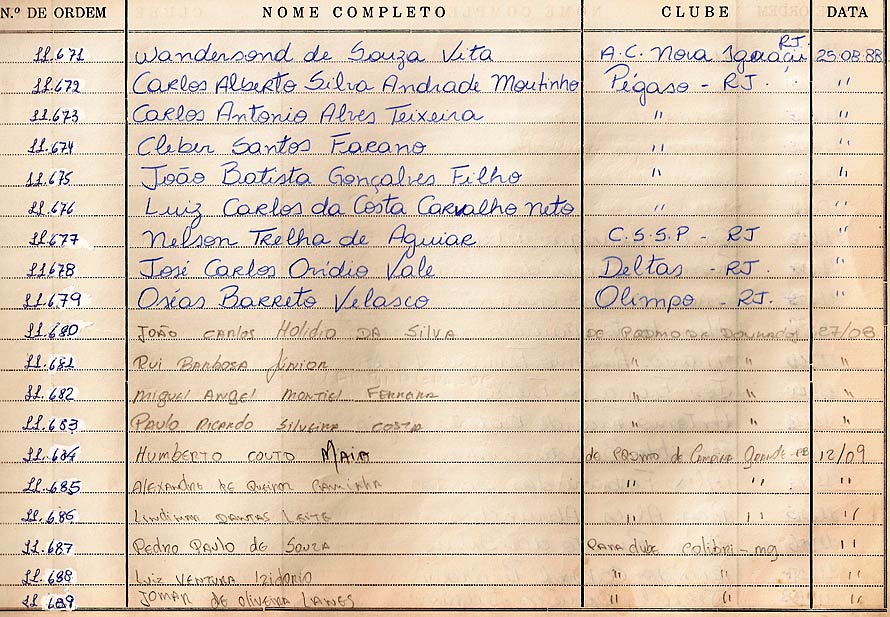 N.º DE ORDEM NOME COMPLETO CLUBE DATA
11.671 Wandersond de Souza Vita A.C. Nova Iguaçu RJ. 25.08.88
11.672 Carlos Alberto Silva Andrade Moutinho Pégaso - RJ. "
11.673 Carlos Antonio Alves Teixeira " "
11.674 Cleber Santos Farano " "
11.675 João Batista Gonçalves Filho " "
11.676 Luiz Carlos da Costa Carvalho Neto " "
11.677 Nelson Trelha de Aguiar C.S.S.P - RJ "
11.678 José Carlos Ovídio Vale Deltas - RJ. "
11.679 Oséas Barreto Velasco Olimpo - RJ. "
11.680 João Carlos Holidio da Silva de Dourados 27/08
11.681 Rui Barbosa Júnior " " "
11.682 Miguel Angel Montiel " " "
11.683 Paulo Ricardo Silveira Costa " " "
11.684 Humberto Couto Maia de de Campina Grande - PB 12/09
11.685 Alexandre de Queiroz Caminha " " "
11.686 Dantas Leite " " "
11.687 Pedro Paulo de Souza Para clube Colibri - MG "
11.688 Luiz Ventura Izidorio " " "
11.689 Jomar de Oliveira Lanes " " "